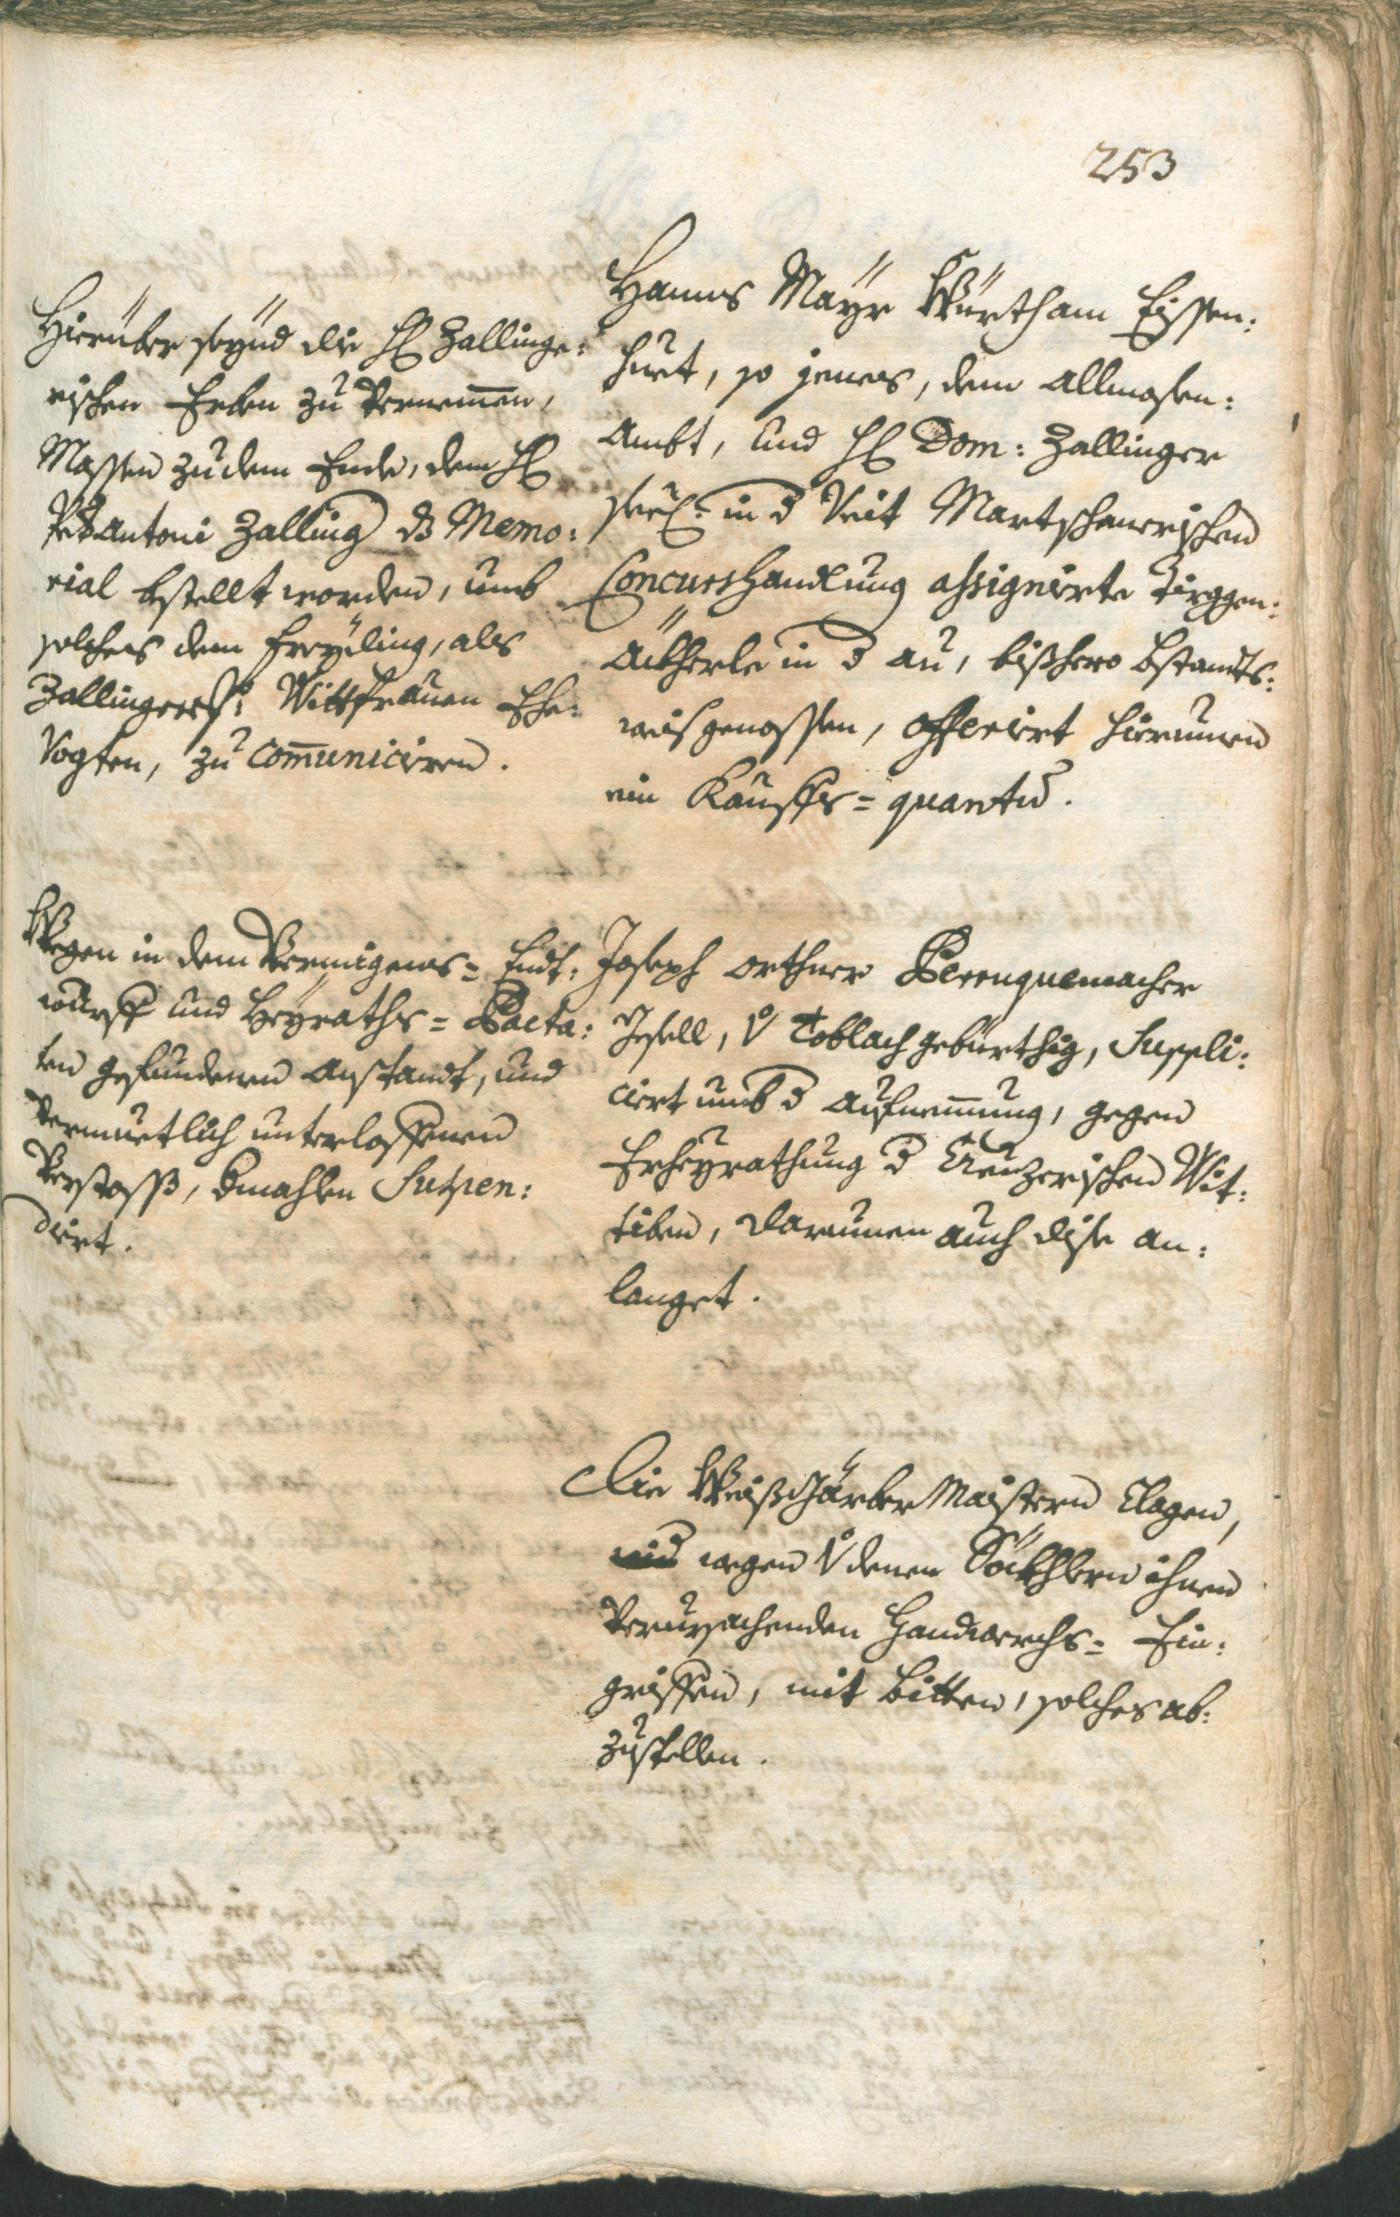 253
Hierüber seynd die H Zallinge:
rischen Erben zu Vernemmen,
Massen zu dem Ende, dem H
Antoni Zalling dz Memo:
rial bstellt worden, umb
solches dem Freyding, als
Zallingeris: Wittfrauen Ehe:
Vogten, zu Communiciren.
Hanns Mäyr Würth am Eissen:
huet, so jenes, dem Allmosen:
Ambt, und H Dom: Zallinger
seel: in d Veit Martschenerischen
Concurshandlung assignirte Tirggen:
Äckherle in d au, bißhero bstandts:
weis genossen, offerirt hierumen
ein Kauffs= quantu.
Wegen in dem Vermögens= Endt:
wurff und Heyraths= Pacta:
ten gefundenen Anstandt, und
Vermuetlich unterloffenen
Verstoss, dmahlen Suspen:
dirt.
Joseph Orthner Perruquemacher
Gesell, v Toblach gebürthig, Suppli:
cirt umb d Aufnemmung, gegen
Erheyrathung d Wit:
tiben, darumen auch dise an:
langet.
Die Weißgärber Maistern Clagen,
wegen v denen Söckhlern ihnen
Verursachenden Handwerchs= Ein:
griffen, mit bitten, solches ab:
zustellen.